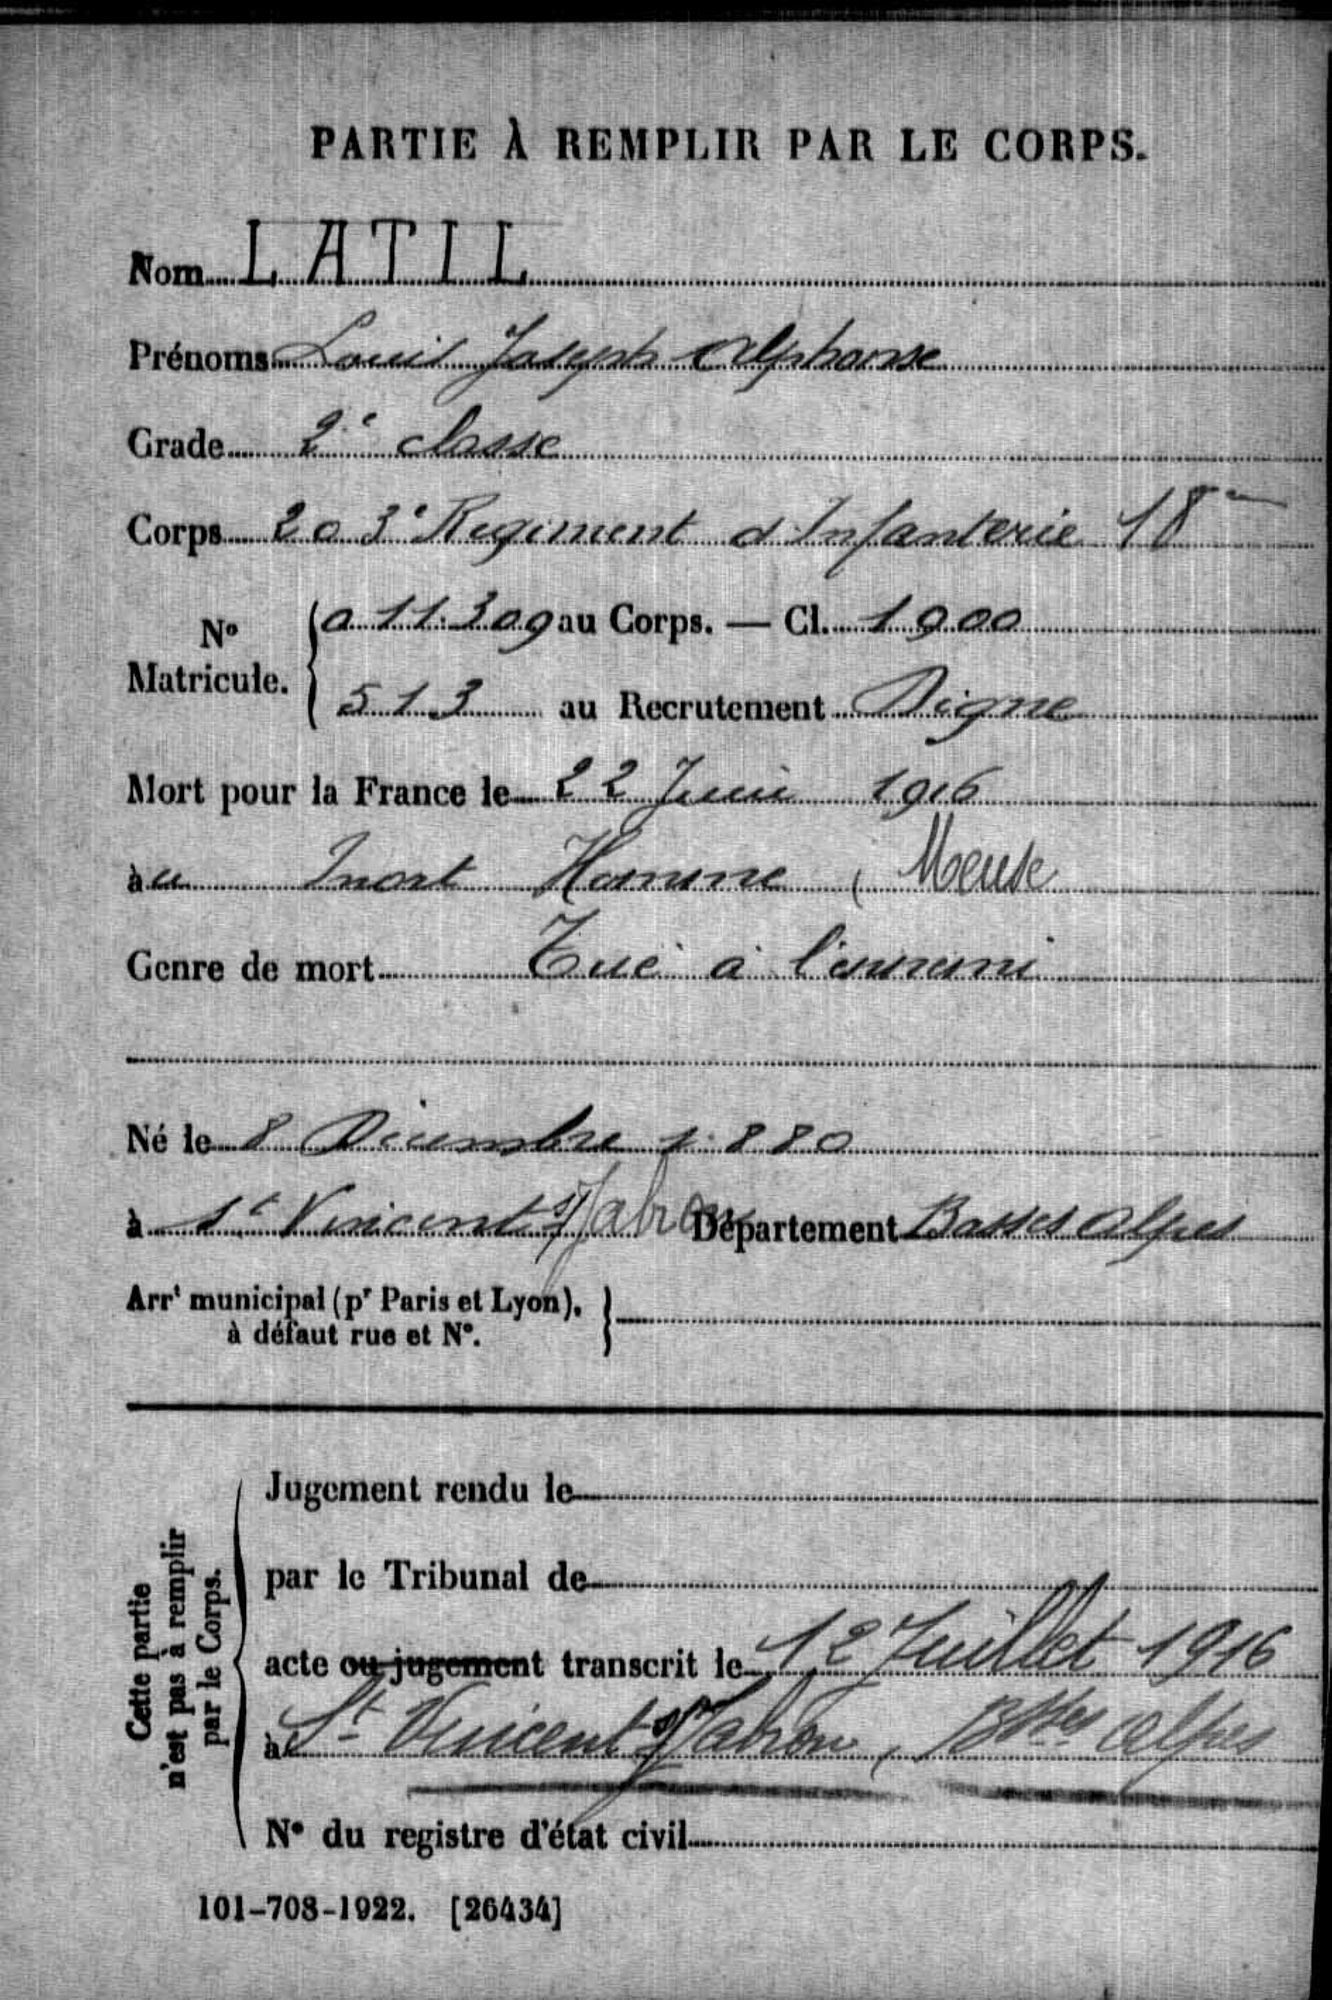 PARTIE À REMPLIR PAR LE CORPS.
Nom LATIL
Prénoms Louis Joseph Alphonse
Grade 2e classe
Corps 203e Regiment d'Infanterie 18
No Matricule. { a 11.309 au Corps. — Cl. 1900
513 au Recrutement Digne
Mort pour la France le 22 Juin 1916
au mort Homme (Meuse
Genre de mort Tué à l'ennemi
Né le 8 Décembre 1880
à St Vincent s/Jabron Département Basses Alpes
Arrt municipal (pr Paris et Lyon),
à défaut rue et No.
Cette partie
n'est pas à remplir
par le Corps.
Jugement rendu le
par le Tribunal de
acte ou jugement transcrit le 12 Juillet 1916
à St Vincent s/Jabron, Bses Alpes
No du registre d'état civil
101-708-1922. [26434]